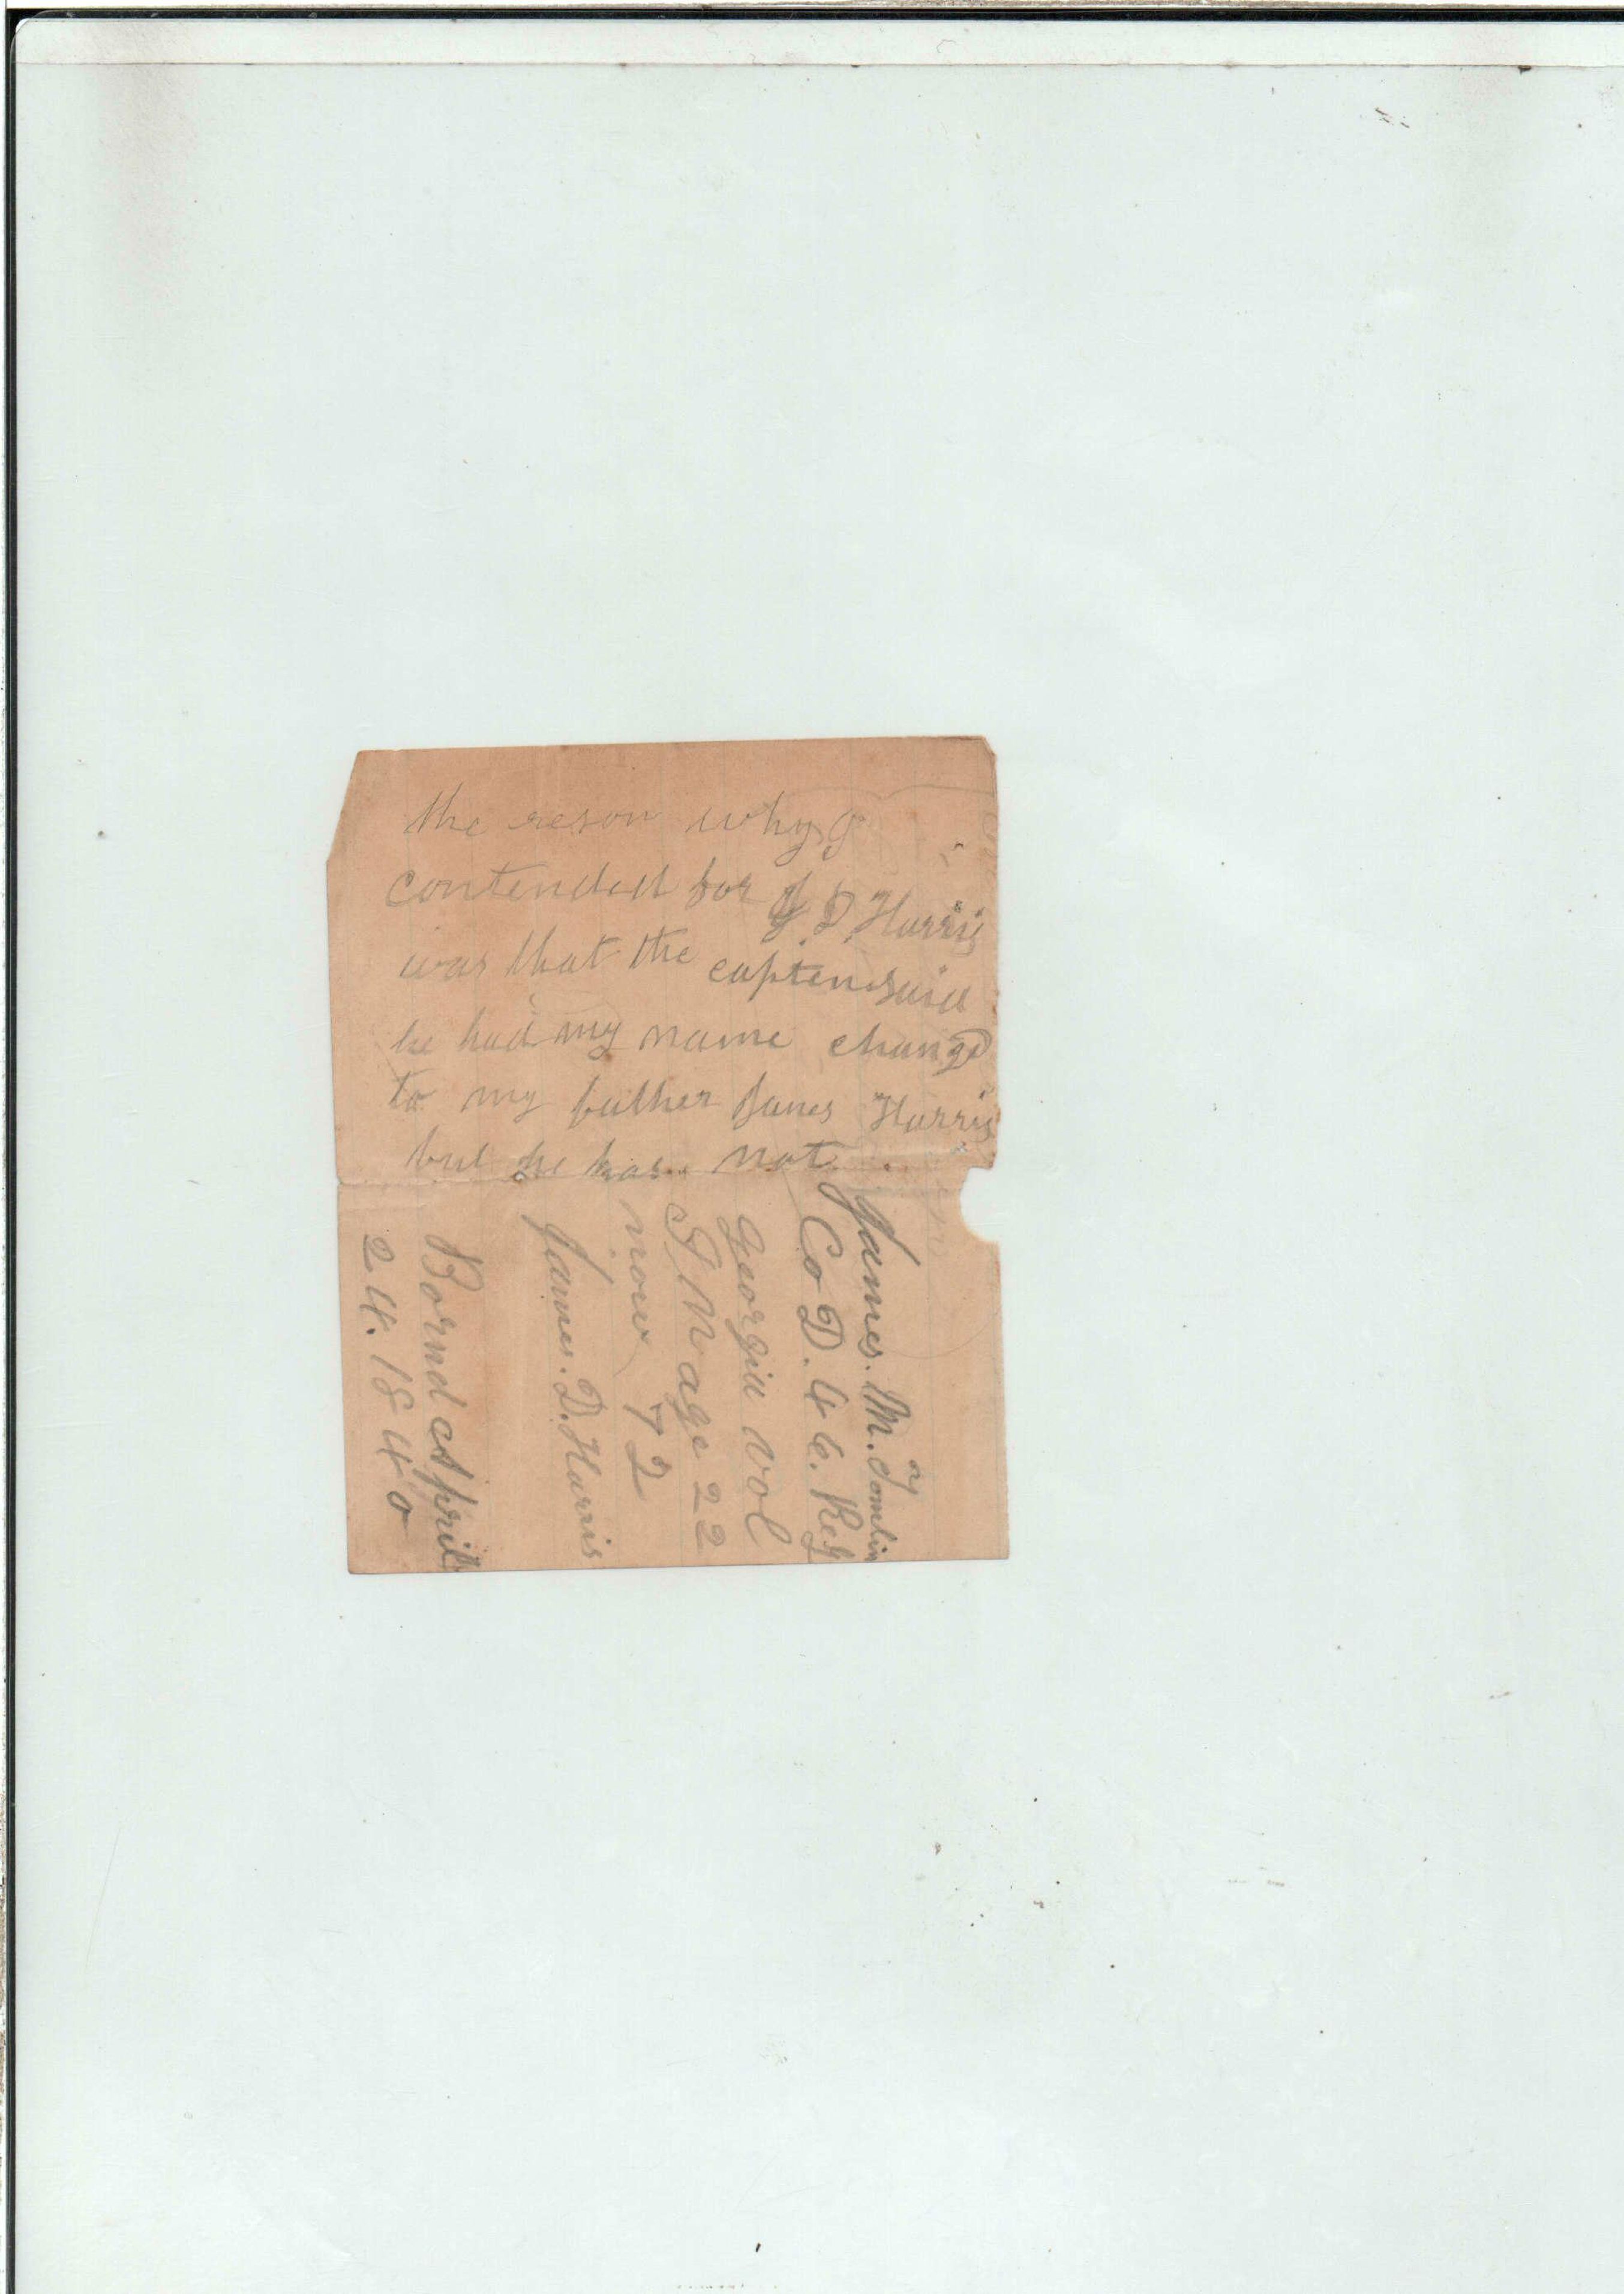 the reson why I
contended for J. D. Harris
was that the capten said
he had my name change
to my father James Harris
but he has not
James. M. Tomlin
Co D. 46. Reg
Georgia vol
age 22
now 72
James. D. Harris
Bornd April
24. 1840